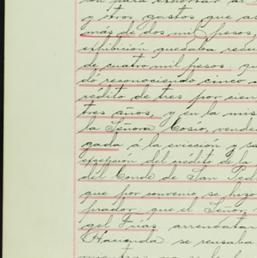 y otros gastos que as
más de dos mil pesos
exhibición quedaba redu
de cuatro mil pesos, que
dó reconociendo cinco a
rédito de tres por cien
tres años, y en la mis
la Señora Cosío, vende
gada á la evicción y sa
excepción del crédito de la
del Conde de San Ped
que por convenio se hizo
prador, que el Señor
gel Frías arrendatar
Hacienda se rehusaba